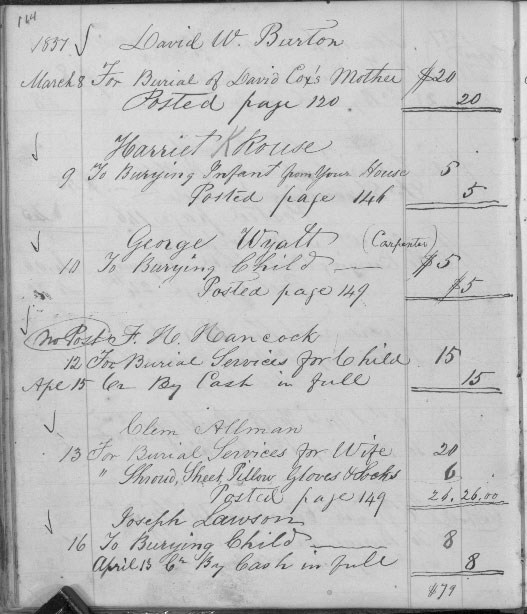 164
1857 David W. Burton
March 8 For Burial of David Cox's Mother $20
Posted page 120 20
Harriet K Rouse
9 To Burying Infant from Your House 5
Posted page 146 5
George Wyatt (Carpenter)
10 To Burying Child — $5
Posted page 149 $5
no Post F. H. Hancock
12 For Burial Services for Child 15
Apl 15 Cr By Cash in full 15
Clem Allman
13 For Burial Services for Wife 20
" Shroud, Sheet, Pillow Gloves & Socks 6
Posted page 149 26. 26.00
Joseph Lawson
16 To Burying Child — 8
April 13 Cr By Cash in full 8
$79